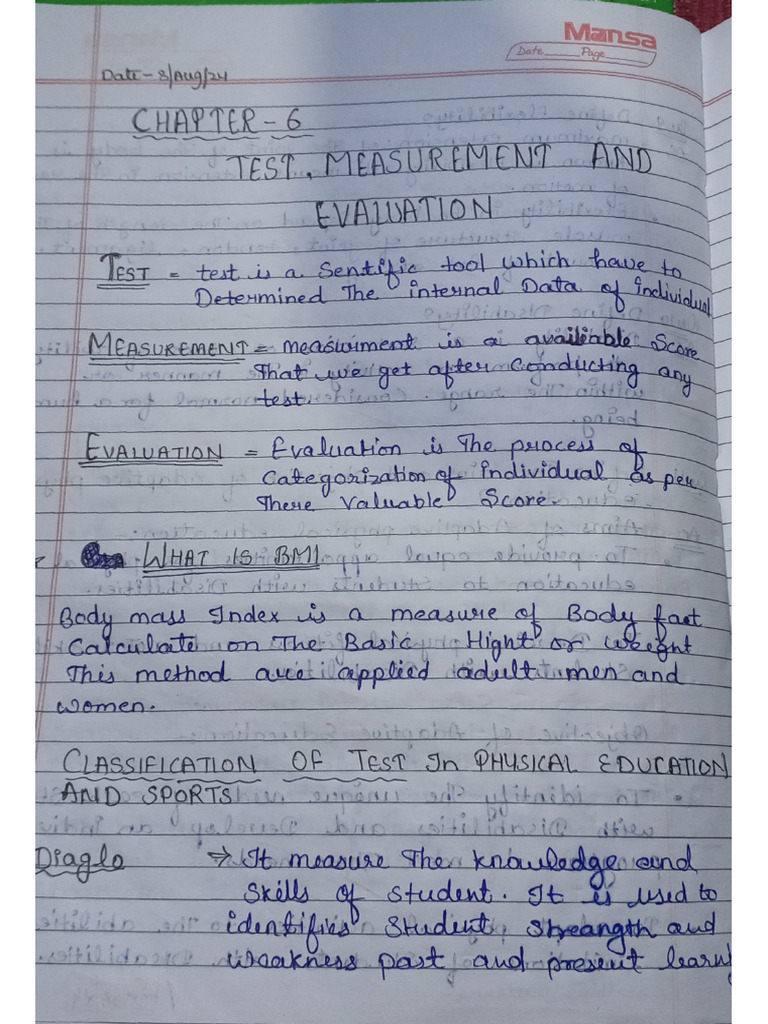 Mansa
Date Page
Date - 8/Aug/24
CHAPTER - 6
TEST, MEASUREMENT AND
EVALUATION
TEST = test is a Sentific tool which have to
Determined The internal Data of individual
MEASUREMENT = measuriment is a available Score
That we get after conducting any
test.
EVALUATION = Evaluation is The process of
Categorization of individual as per
There Valuable Score.
WHAT IS BMI
Body mass Index is a measure of Body fact
Calculate on The Basic Hight or weight
This method are applied adult men and
women.
CLASSIFICATION OF TEST In PHYSICAL EDUCATION
AND SPORTS
Diaglo → It measure The knowledge and
Skills of Student. It is used to
identifies Student streangth and
weakness past and present learn